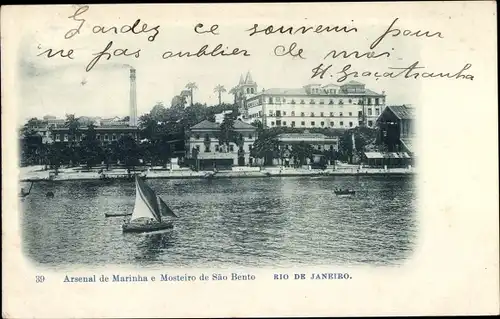 Gardez ce souvenir pour
ne pas oublier de moi
H. Graçatranha
39 Arsenal de Marinha e Mosteiro de São Bento RIO DE JANEIRO.